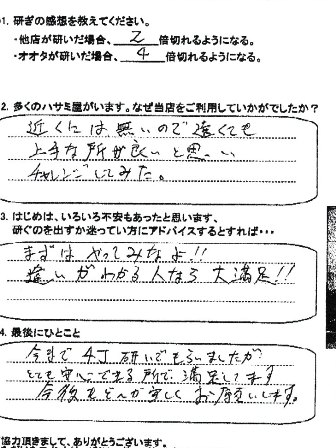 1. 研ぎの感想を教えてください。
・他店が研いだ場合、2 倍切れるようになる。
・オオタが研いだ場合、4 倍切れるようになる。
2. 多くのハサミ屋がいます。なぜ当店をご利用していかがでしたか？
近くには無いので遠くても
上手な所が良いと思い
チャレンジしてみた。
3. はじめは、いろいろ不安もあったと思います、
研ぐのを出すか迷ってい方にアドバイスするとすれば・・・
まずはやってみなよ!!
違いがわかる人なら大満足!!
4. 最後にひとこと
今まで4丁研いでもらいましたが
とても安心できる所で満足してます
今後もどんが宜しくお願いします。
協力頂きまして、ありがとうございます。